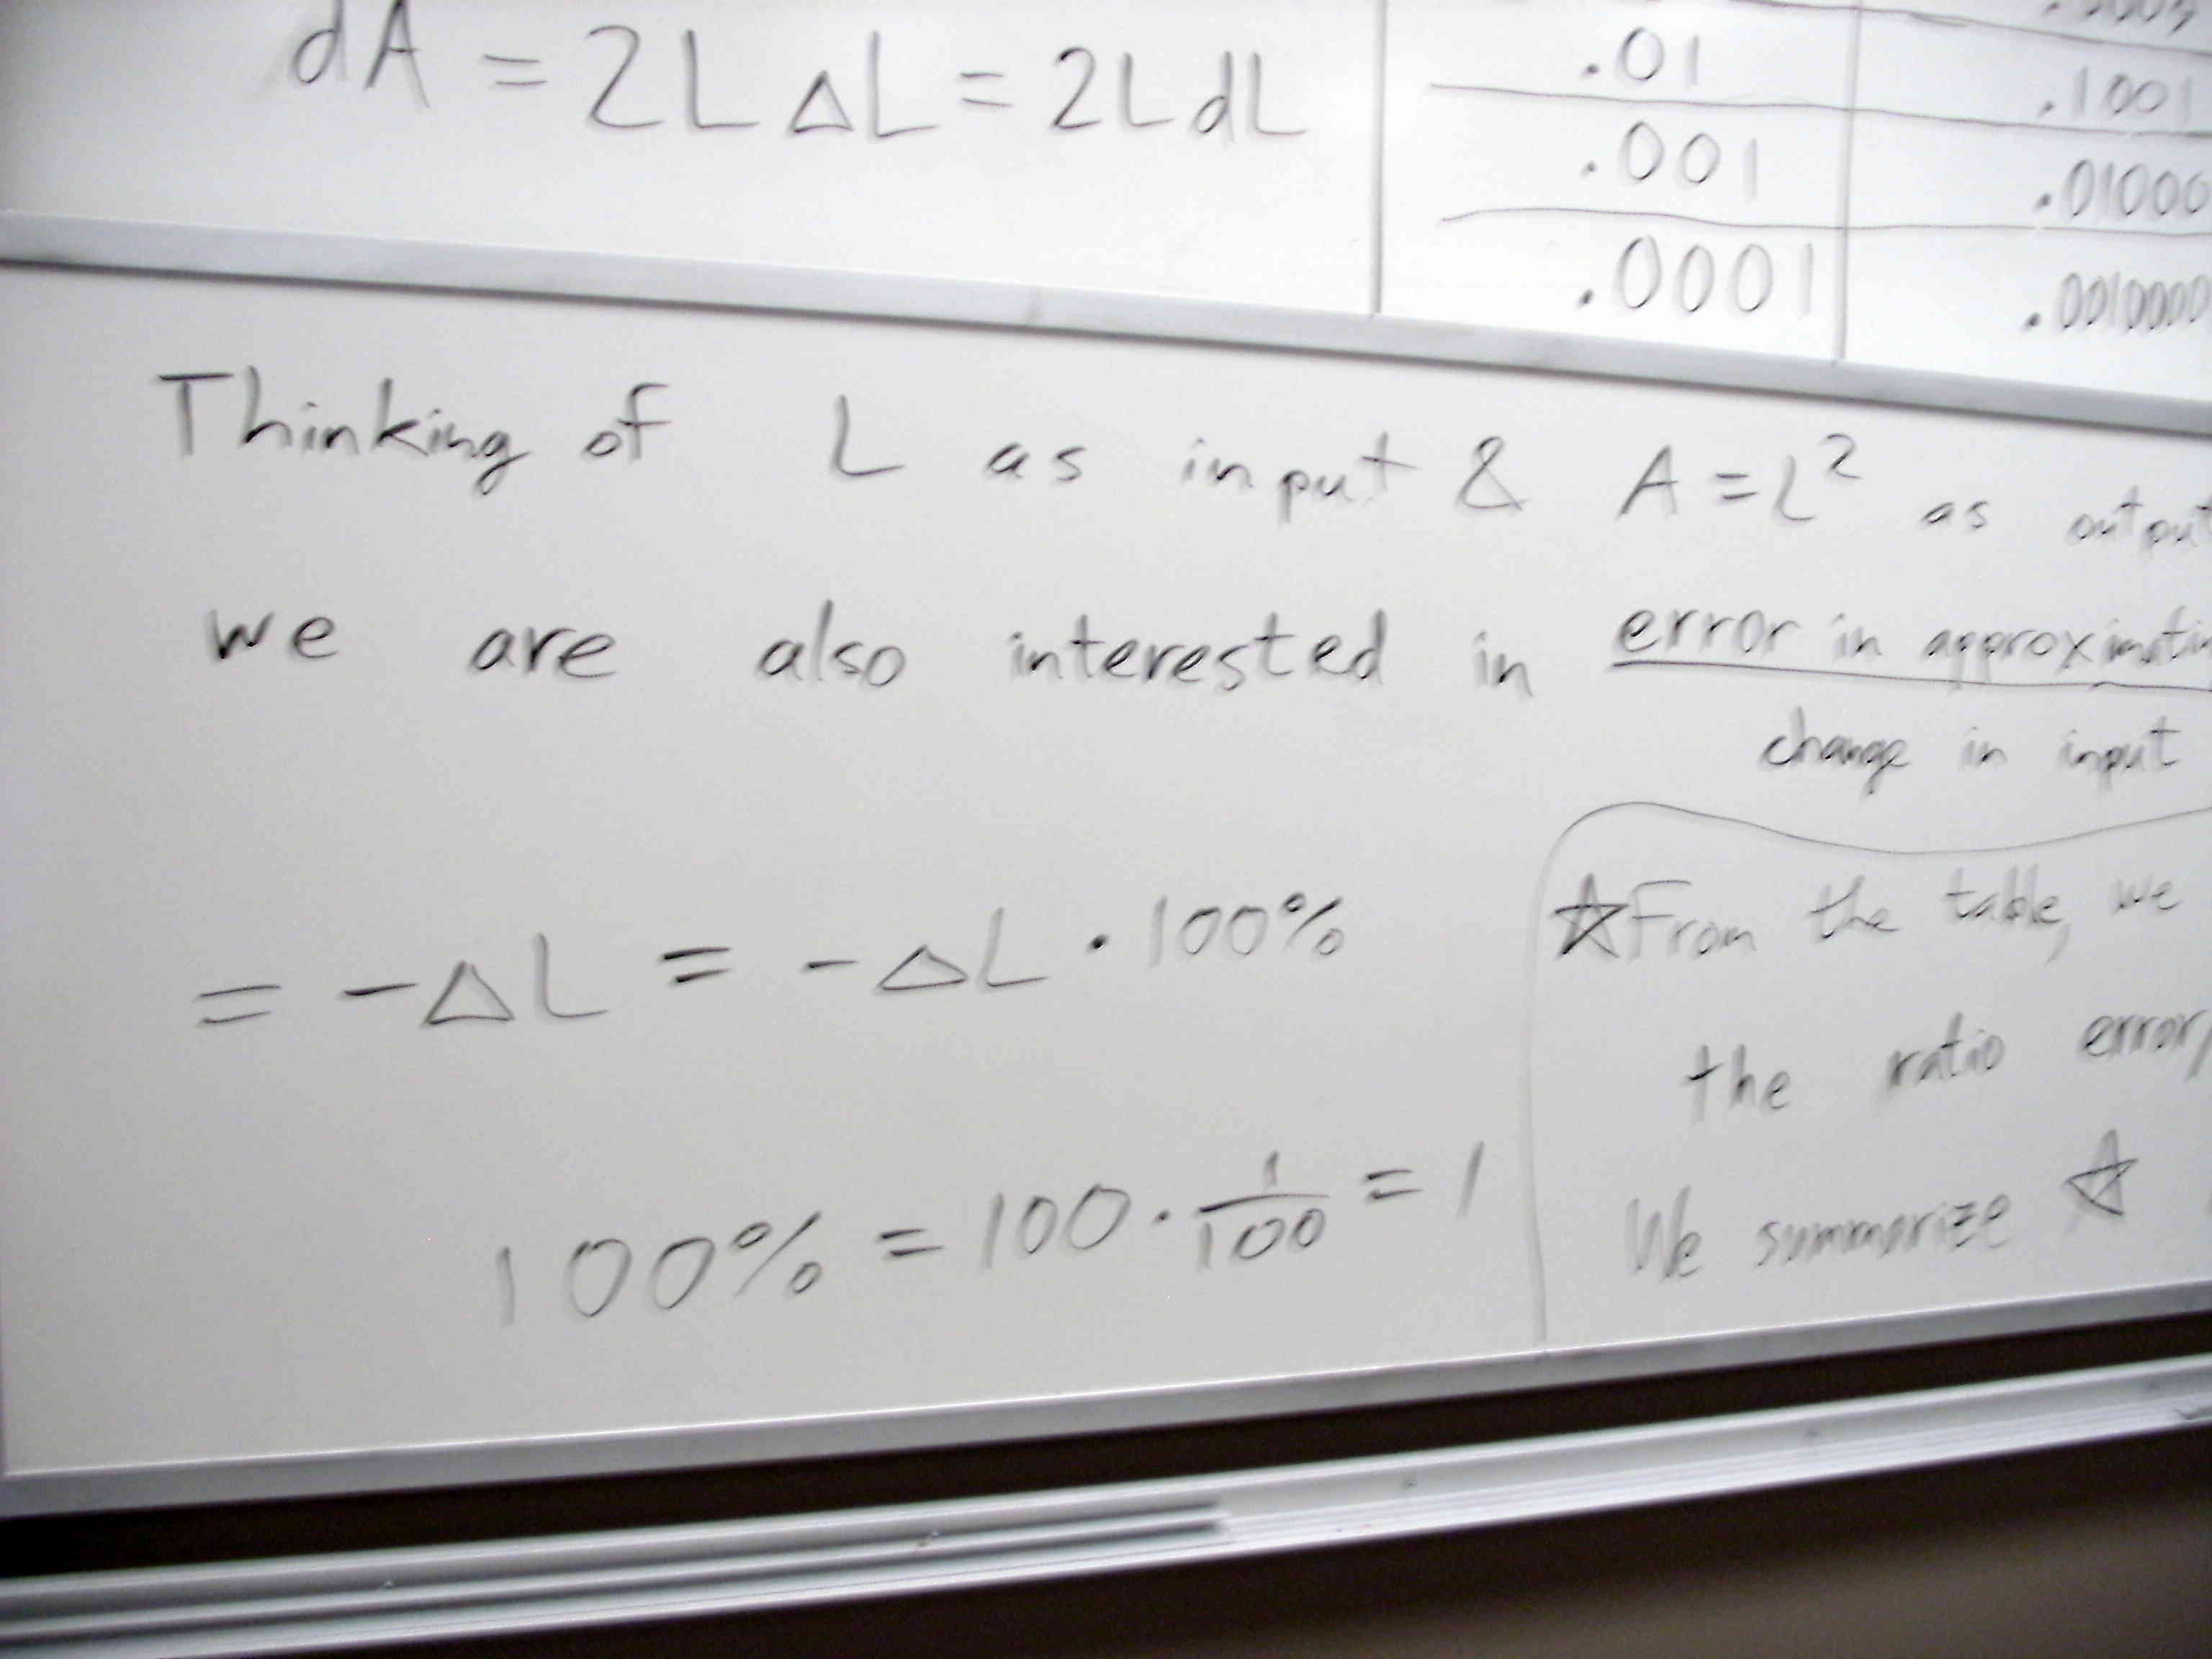 dA = 2L ΔL = 2L dL
.01 .1001
.001 .01000
.0001 .0010000
Thinking of L as input & A = L² as output
we are also interested in error in approximatin
change in input
= -ΔL = -ΔL · 100%
100% = 100 · 1/100 = 1
☆From the table, we
the ratio error/
We summarize ☆